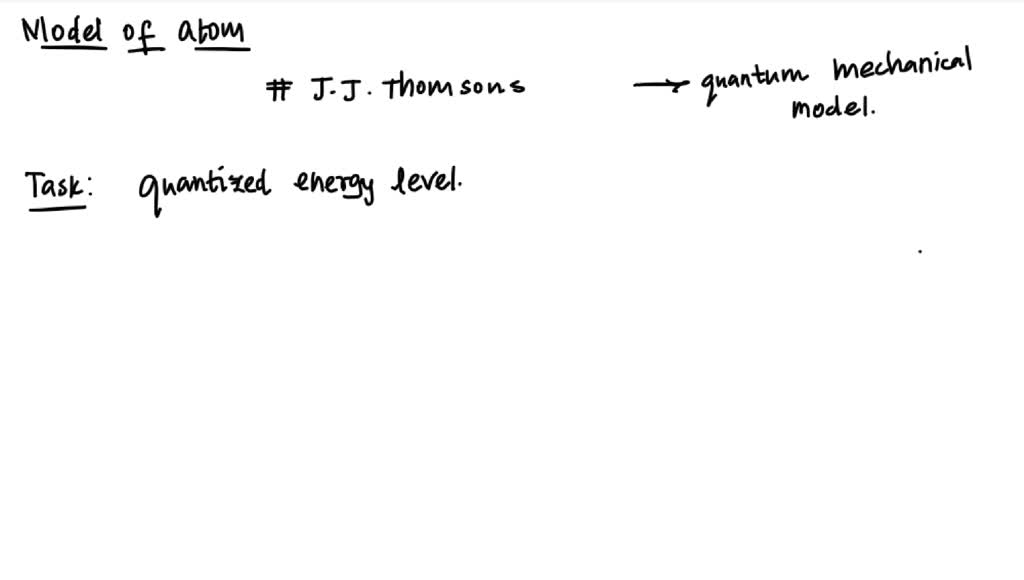 Model of atom
# J.J. Thomsons → quantum mechanical
model.
Task: quantized energy level.